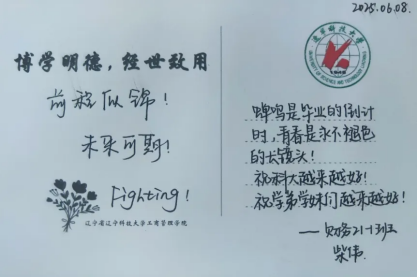 2025.06.08.
博学明德，经世致用
前程似锦！
未来可期！
Fighting！
辽宁省辽宁科技大学工商管理学院
辽宁科技大学
UNIVERSITY OF SCIENCE AND TECHNOLOGY LIAONING
蝉鸣是毕业的倒计
时，青春是永不褪色
的长镜头！
祝科大越来越好！
祝学弟学妹们越来越好！
——财务21-1班
柴伟.